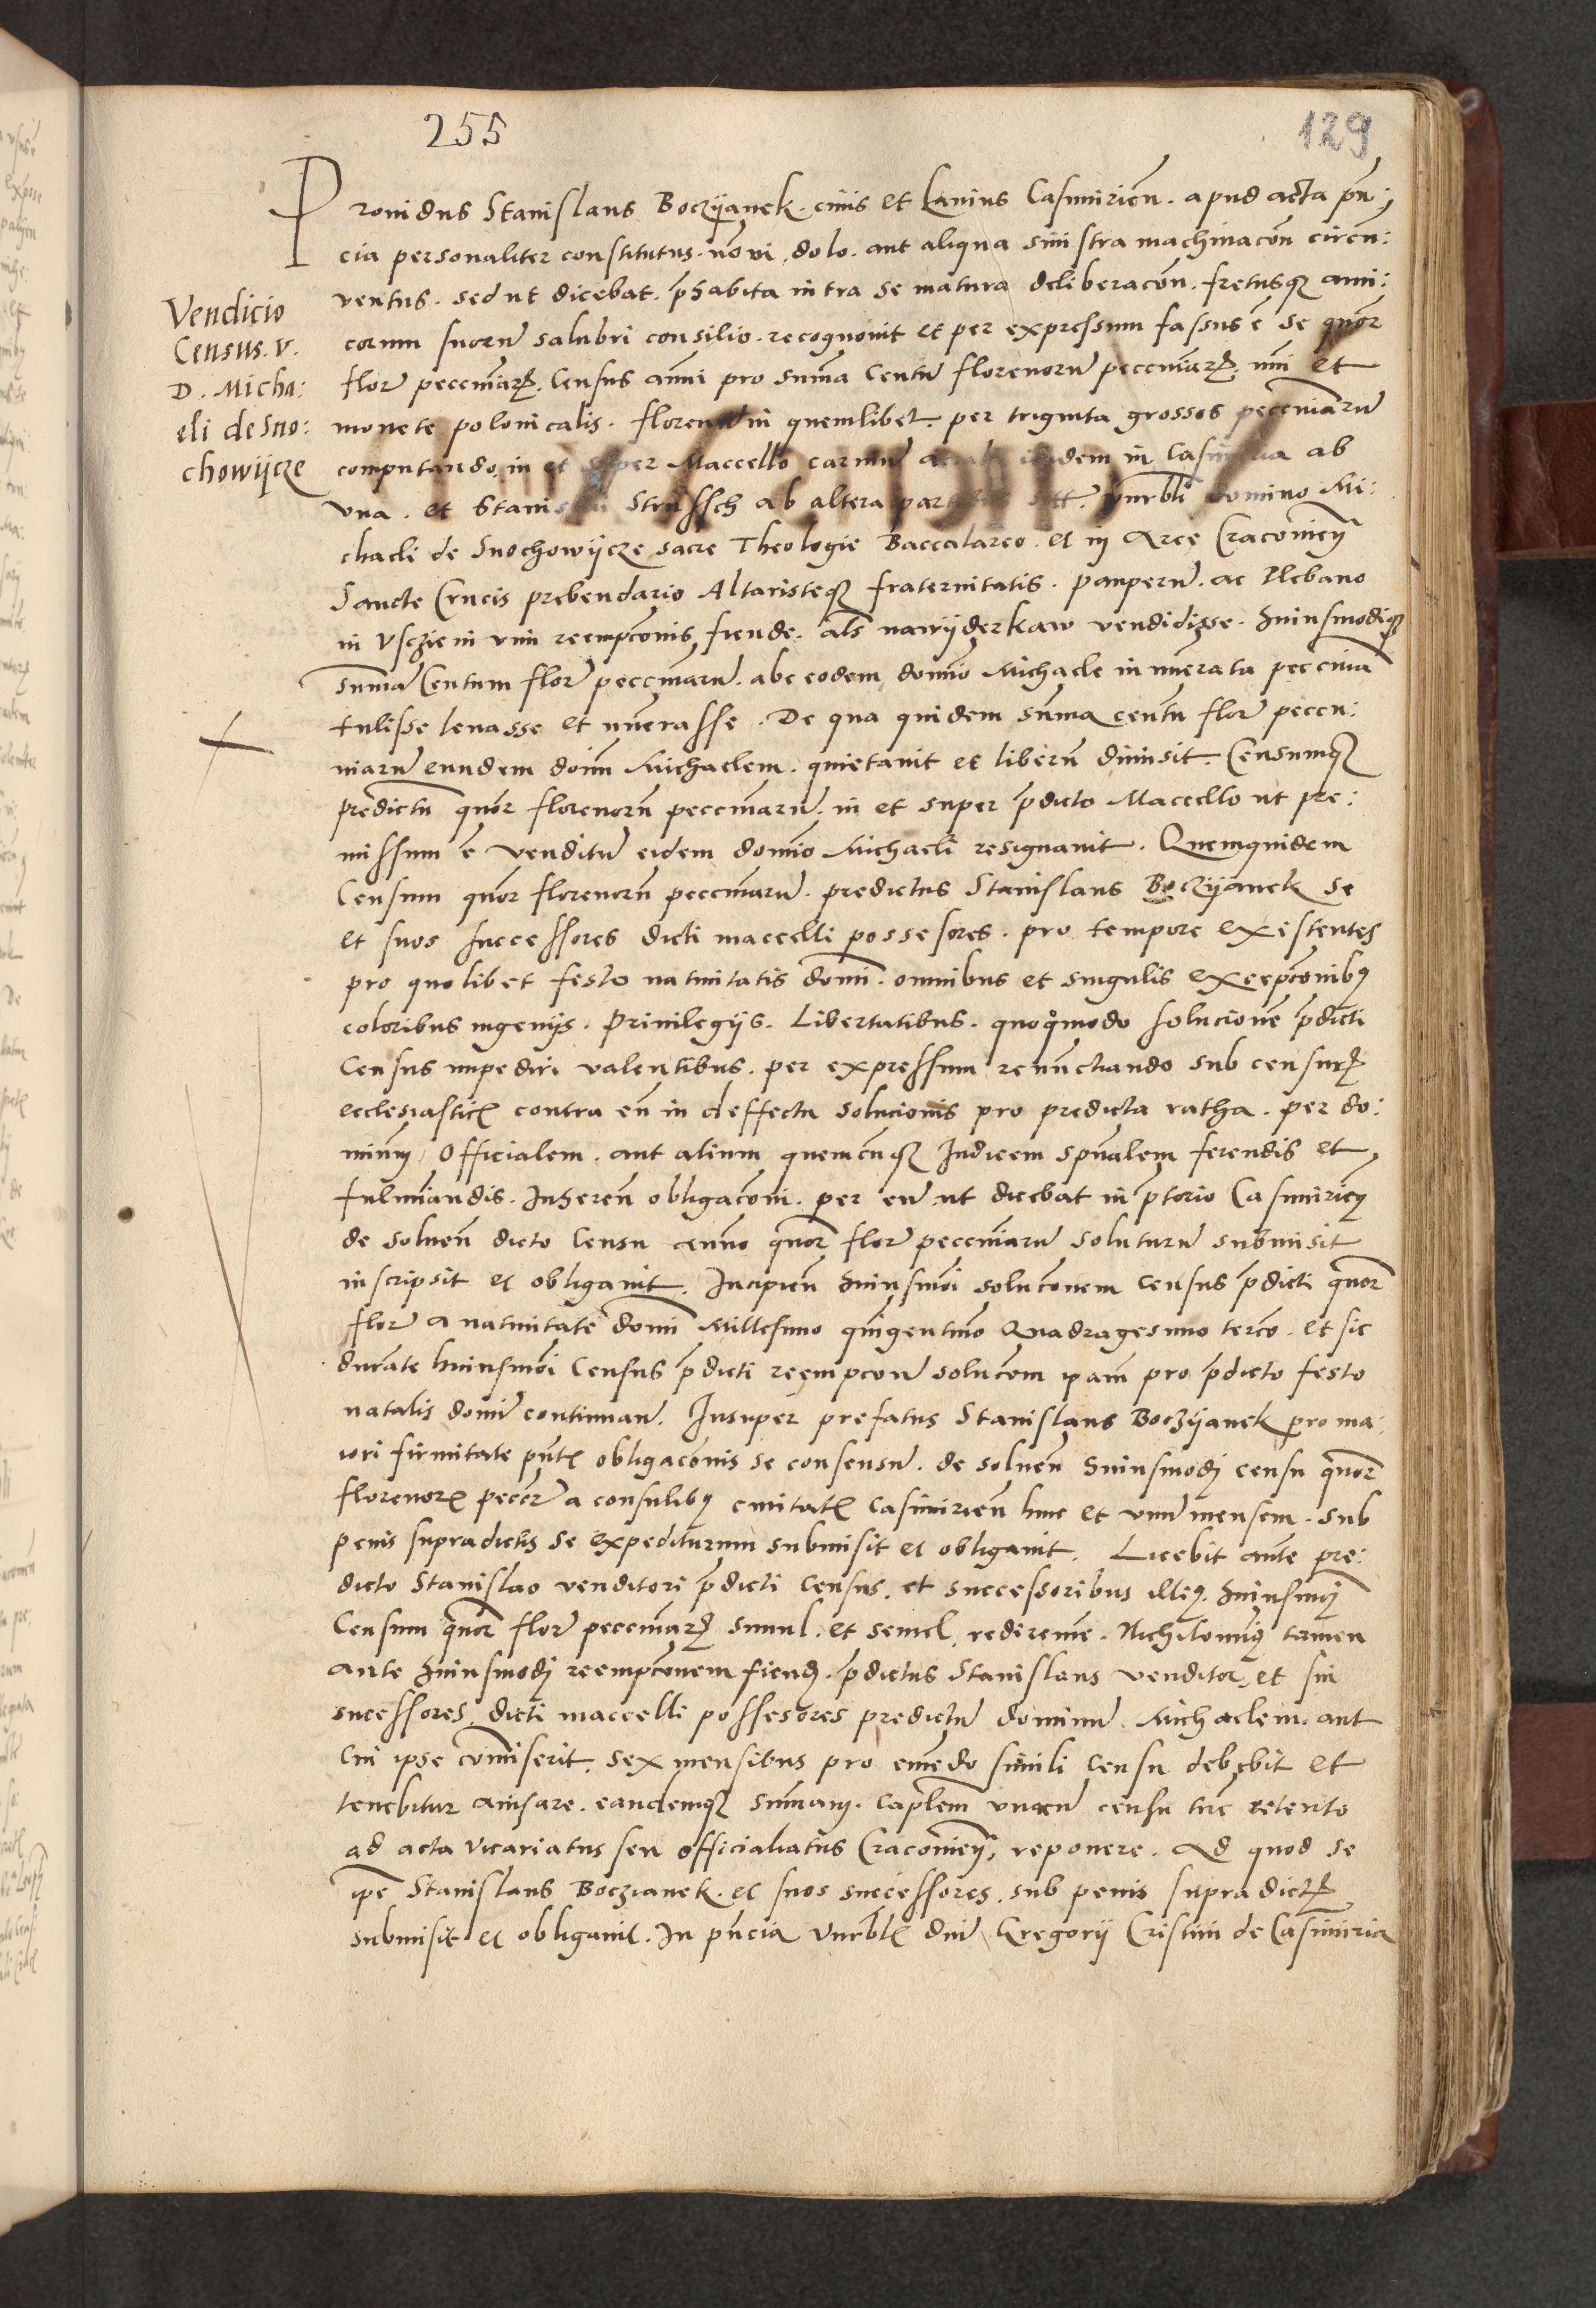 255
129
Prouidus Stanislaus Boczÿanek. ciuis et Lanius Casimirień. apud acta pñ
cia personaliter constitutus. nõ vi, dolo. aut aliqua sinistra machinacoñ circũ:
uentus. sed ut dicebat. p̃habita intra se matura deliberacoñ. fretusqꝫ ami:
corum suorũ salubri consilio. recognouit et per expressum fassus ẽ se quõr
Vendicio
Census. V.
D. Micha:
eli de Sno:
chowÿcze
flor̃ peccuniarꝝ. Census annui pro summa Centũ florenorũ peccuniarꝝ. nũi et
monete polonicalis. florenum in quemlibet. per triginta grossos peccuniarũ
computando, in et super Maccello carniũ ibidem in Casimiria ab
vna. et Stanislai Strussch ab altera partibus sitt. vnrbli domino Mi:
chaeli de Snochowÿcze sacre Theologie Baccalareo. et in Arce Cracouieñ
Sancte Crucis prebendario Altaristeqꝫ fraternitatis. pauperũ. ac Plebano
in Vsczieni vim reempcionis fiende. als nawÿderkaw vendidisse. huiusmodiqꝫ
summã Centum flor̃ peccuniarũ. abe eodem domĩo Michaele in nũerata peccunia
tulisse leuasse et nũerasse. De qua quidem sũma centũ flor̃ peccu:
niarũ eundem doĩm Michaelem. quietauit et liberũ dimisit. Censumqꝫ
predictũ quõr florenorũ peccuniarũ. in et super p̃dicto Maccello ut pre:
missum ẽ venditũ eidem domĩo Michaeli resignauit. Quemquidem
Censum quõr florenorũ peccuniarũ. predictus Stanislaus Boczÿanek se
et suos successores dicti maccelli possesores. pro tempore existentes
pro quolibet festo natiuitatis domĩ. omnibus et singulis excepcõnibꝰ
coloribus ingenijs. Priuilegijs. Libertatibus. quoq̃modo solucionẽ p̃dicti
Census impediri valentibus. per expressum renũctiando sub censurꝭ
ecclesiasticꝭ contra eũ in deffectu solucionis pro predicta ratha. per do:
minũ Officialem. aut alium quemcũqꝫ Iudicem spũalem ferendis et
fulminandis. Inhereñ obligacõni. per eũ ut dicebat in p̃torio Casimirieñ
de solueñ dicto Censu annuo quõr flor̃ peccuniarũ soluturũ submisit
inscripsit et obligauit. Incipieñ huiusmõi solucõnem census p̃dicti quõr
flor̃ a natiuitate domĩ Millesimo quĩgentimo Quadragesimo tercõ. et sic
durãte huiusmõi Census p̃dicti reempcoñ solucoem ipam̃ pro p̃dicto festo
natalis domĩ continuañ. Insuper prefatus Stanislaus Boczÿanek pro ma:
iori firmitate pñtꝭ obligacõnis se consensũ. de solueñ huiusmodi censu quõr
florenorꝭ peccer̃ a consulibꝰ ciuitatꝭ Casimirieñ hinc et vnũ mensem. sub
penis supradictis se expediturum submisit et obligauit. Licebit aute pre:
dicto Stanislao venditori p̃dicti Census. et successoribus illiꝰ. huiusmõi
Censum quõr flor̃ peccuniarꝝ simul. et semel, redeĩere. Nichilominꝰ tamen
ante huiusmodi reempcõnem fiendã. p̃dictus Stanislaus venditor, et sui
sucessores, dicti maccelli possesores predictũ dominũ. Michaelem. aut
cui ipse cõmiserit. sex mensibus pro emẽdo simili Censu debebit et
tenebitur auisare. eandemqꝫ sũmam. capĩlem vnacũ censu tũc retento
ad acta vicariatus seu officialiatus Cracouieñ, reponere. Ad quod se
ipe Stanislaus Boczianek. et suos successores, sub penis supradictꝭ
submisit et obligauit. In pñcia Vnrblꝭ dñi Gregorij Cristini de Casimiria